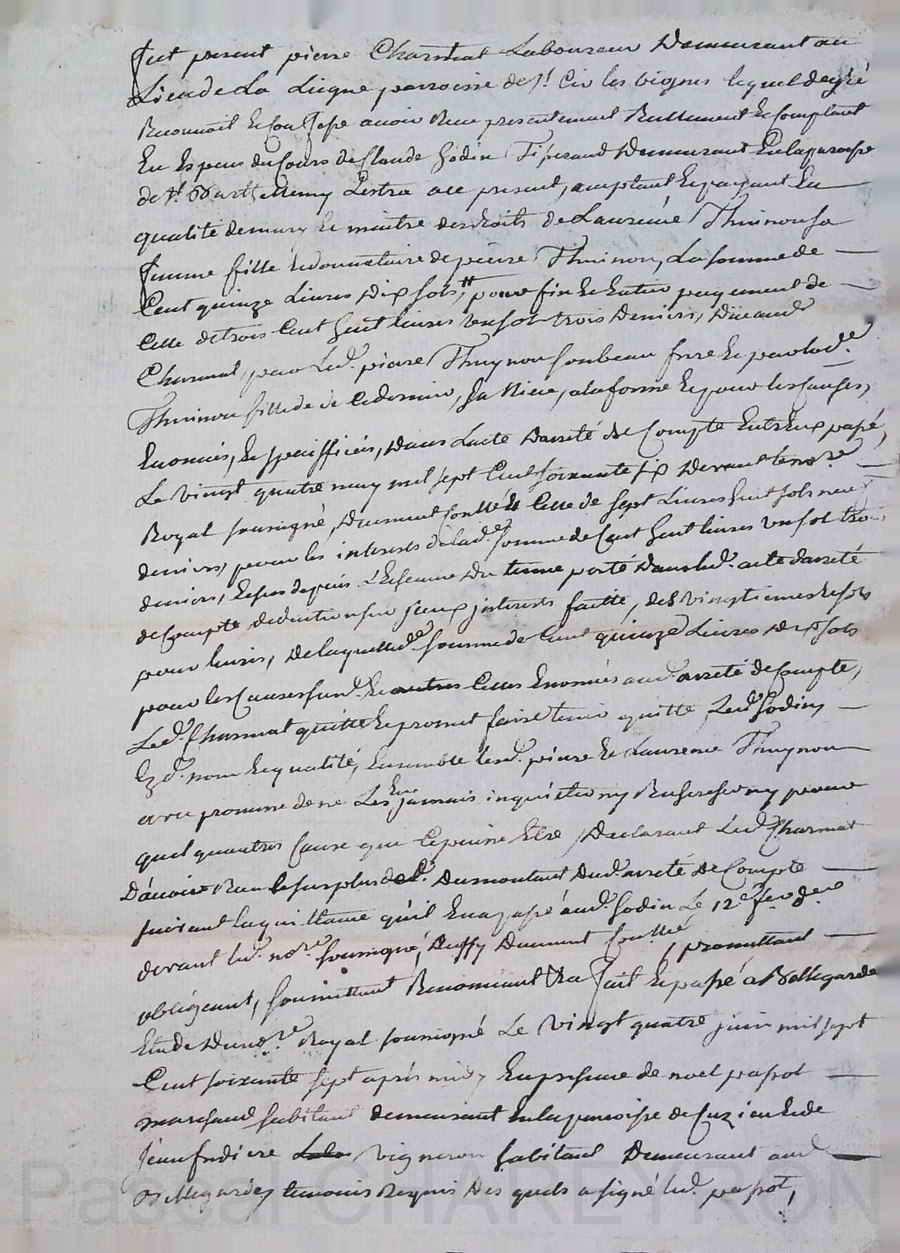 fut present pierre Charmat Laboureur Demeurant au
Lieu de La Liegne parroisse de St. Cir les vignes lequel de gré
Reconnoit et Confesse avoir Reçu presentement Reellement et Comptant
En Espece du Cours de Claude Godin Tisserand Demeurant En la paroisse
de St. Barthellemy Lestra ace present, acceptant et payant En
qualité de mary et maitre des droits de Laurence Thuinon sa
femme fille et donnataire de pierre Thuinon, La somme de
Cent quinze Livres Dix sols, pour fin et Entier payement de
Celle de trois Cent huit livres un sol trois Deniers, Due aud.
Charmat, par Led. pierre Thuynon son beau frere et par lad.
Thuinon fille de ce dernier, sa Niece, a la forme et pour les causes,
Enoncées, et speciffiées, Dans L'acte D'arreté de Compte Entr'Eux passé,
Le vingt quatre may mil sept Cent soixante six Devant le nore.
Royal soussigné Duement Conttrollé Celle de sept Livres huit sols neuf
deniers, pour les interests de lad. somme de Cent huit livres un sol trois
deniers, depuis L'Echeance Du terme porté Dans led. acte D'arreté
de Compte deduction sur iceux interests faitte, des vingtiemes et sols
pour livres, De laquelle d. somme de Cent quinze Livres Dix sols
pour les Causes susd. et autres Celles Enoncées aud. arreté de Compte,
Led. Charmat quitte et promet faire tenir quitte Led. Godin,
Ez d. nom et qualité, Ensemble lesd. pierre et Laurence Thuynon
avec promesse de ne Les En jamais inquietter ny Rechercher ny pour
quelqu'autres Cause que Ce puisse Etre, Declarant Led. Charmat
D'avoir Reçu le surplus de Du montant Dud. arreté de Compte
suivant la quittance qu'il En a passé aud. Godin Le 12e.
devant led. nore. soussigné, Aussy Duement Conttrollé, promettant
obligeant, soumettant Renonceant &a fait et passé a Bellegarde
Etude Du nore. Royal soussigné Le vingt quatre juin mil sept
Cent soixante sept après midy En presence de noel papot
marchand habitant demeurant en la paroisse de Cuzieu et de
jean fredière vigneron habitant Demeurant aud.
Bellegarde, temoins Requis Des quels a signé led. papot,
Pascal CHAREYRON